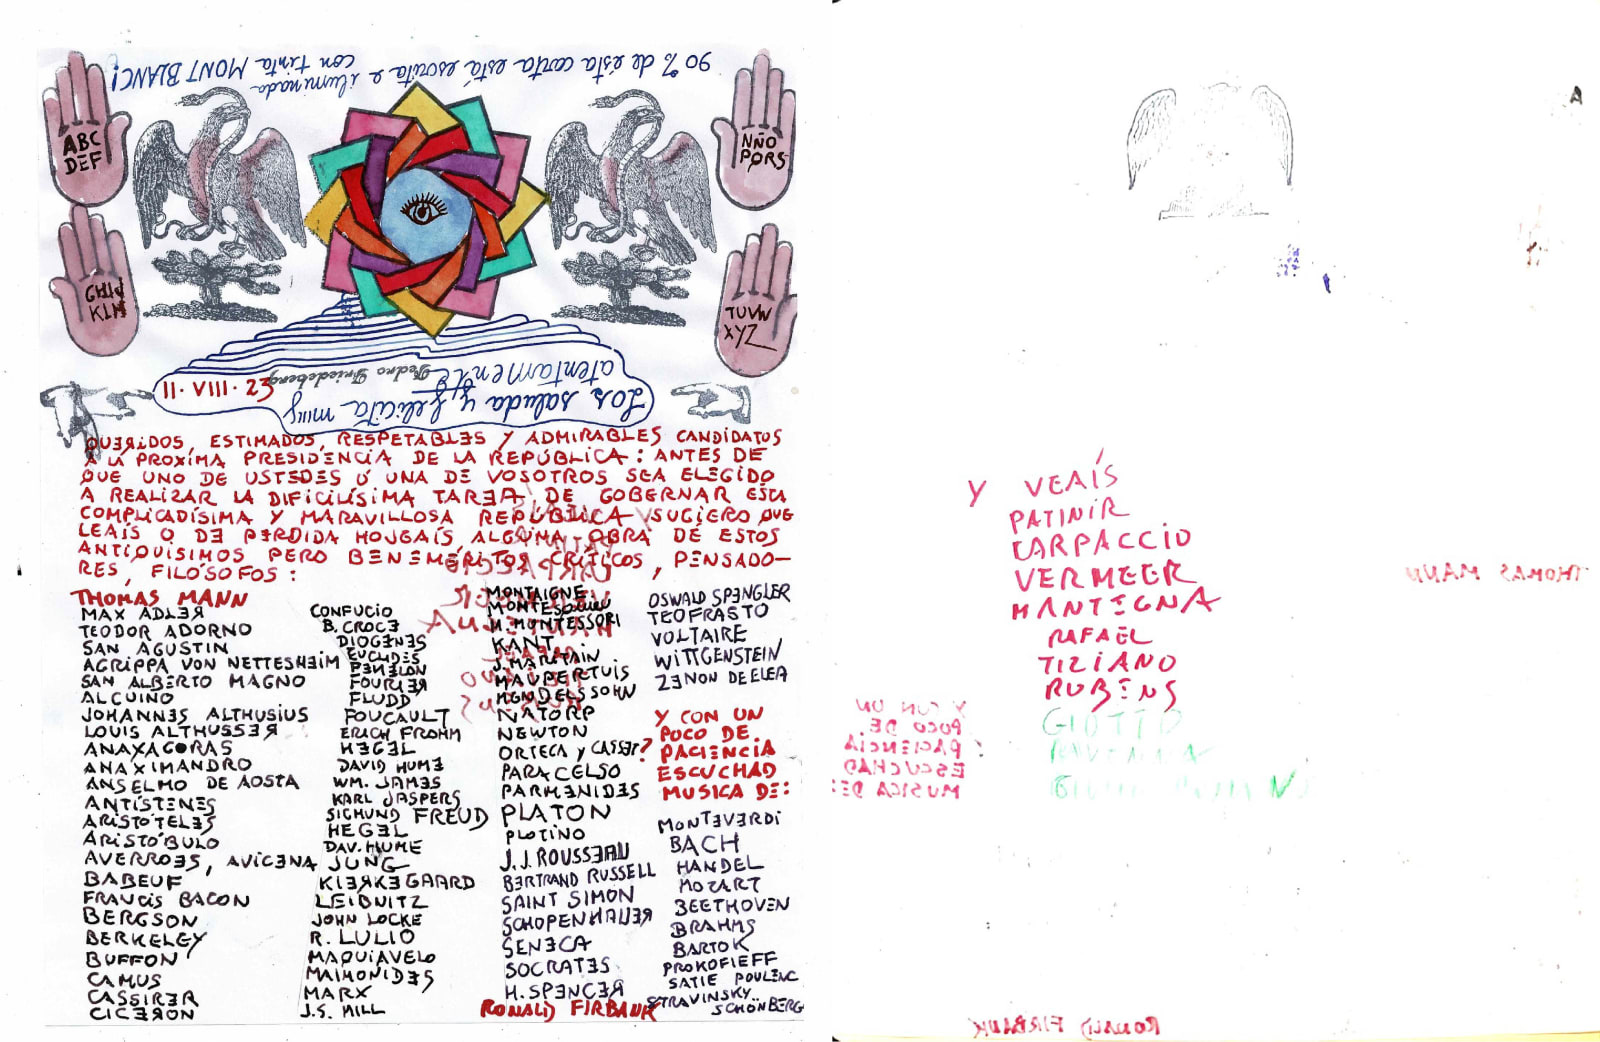 90% de ésta carta está escrita e iluminada
con tinta MONT BLANC!
ABC
DEF
NÑO
PQRS
GHIJ
KLM
TUVW
XYZ
Los saluda y felicita muy
atentamente
Pedro Friedeberg
II · VIII · 23
QUERIDOS, ESTIMADOS, RESPETABLES Y ADMIRABLES CANDIDATOS
A LA PROXÍMA PRESIDENCIA DE LA REPÚBLICA: ANTES DE
QUE UNO DE USTEDES Ó UNA DE VOSOTROS SEA ELEGIDO
A REALIZAR LA DIFICILÍSIMA TAREA DE GOBERNAR ESTA
COMPLICADÍSIMA Y MARAVILLOSA REPÚBLICA SUGIERO QUE
LEAÍS O DE PERDIDA HOJEAÍS ALGUNA OBRA DE ESTOS
ANTIQUÍSIMOS PERO BENEMÉRITOS CRÍTICOS, PENSADO-
RES, FILÓSOFOS:
THOMAS MANN
MAX ADLER
TEODOR ADORNO
SAN AGUSTIN
AGRIPPA VON NETTESHEIM
SAN ALBERTO MAGNO
ALCUINO
JOHANNES ALTHUSIUS
LOUIS ALTHUSSER
ANAXAGORAS
ANAXIMANDRO
ANSELMO DE AOSTA
ANTÍSTENES
ARISTÓTELES
ARISTÓBULO
AVERROES, AVICENA
BABEUF
FRANCIS BACON
BERGSON
BERKELEY
BUFFON
CAMUS
CASSIRER
CICERON
CONFUCIO
B. CROCE
DIOGENES
EUCLIDES
FENELON
FOURIER
FLUDD
FOUCAULT
ERICH FROMM
HEGEL
DAVID HUME
WM. JAMES
KARL JASPERS
SIGMUND FREUD
HEGEL
DAV. HUME
JUNG
KIERKEGAARD
LEIBNITZ
JOHN LOCKE
R. LULIO
MAQUIAVELO
MAIMONIDES
MARX
J.S. MILL
MONTAIGNE
MONTESQUIEU
M. MONTESSORI
KANT
J. MARITAIN
MAUPERTUIS
MENDELSSOHN
NATORP
NEWTON
ORTEGA y GASSET?
PARACELSO
PARMENIDES
PLATON
PLOTINO
J.J. ROUSSEAU
BERTRAND RUSSELL
SAINT SIMON
SCHOPENHAUER
SENECA
SOCRATES
H. SPENCER
RONALD FIRBANK
OSWALD SPENGLER
TEOFRASTO
VOLTAIRE
WITTGENSTEIN
ZENON DE ELEA
Y CON UN
POCO DE
PACIENCIA
ESCUCHAD
MUSICA DE:
MONTEVERDI
BACH
HANDEL
MOZART
BEETHOVEN
BRAHMS
BARTOK
PROKOFIEFF
SATIE POULENC
STRAVINSKY
SCHÖNBERG
Y VEAÍS
PATINIR
CARPACCIO
VERMEER
MANTEGNA
RAFAEL
TIZIANO
RUBENS
GIOTTO
RAVENNA
THOMAS MANN
Y CON UN
POCO DE
PACIENCIA
ESCUCHAD
MUSICA DE:
RONALD FIRBANK